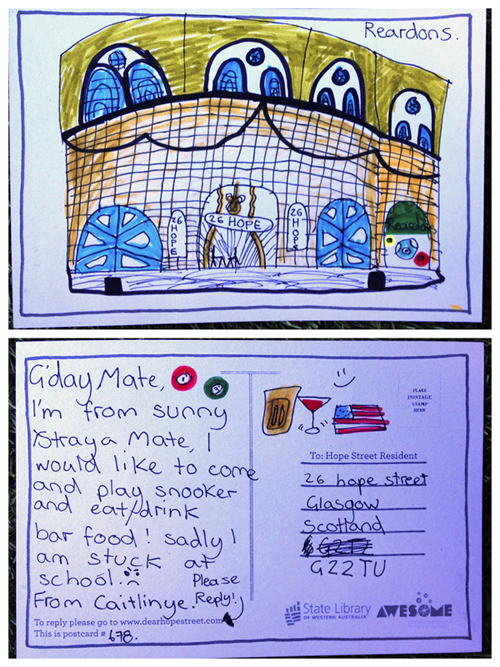 Reardons.
26 HOPE
26 HOPE
26 HOPE
Reardons
G'day Mate,
I'm from sunny
Straya Mate, I
would like to come
and play snooker
and eat/drink
bar food! sadly I
am stuck at
school.
Please
From Caitlinye. Reply!
To reply please go to www.dearhopestreet.com
This is postcard # 678.
PLACE
POSTAGE
STAMP
HERE
To: Hope Street Resident
26 hope street
Glasgow
Scotland
G22TU
State Library
OF WESTERN AUSTRALIA
AWESOME